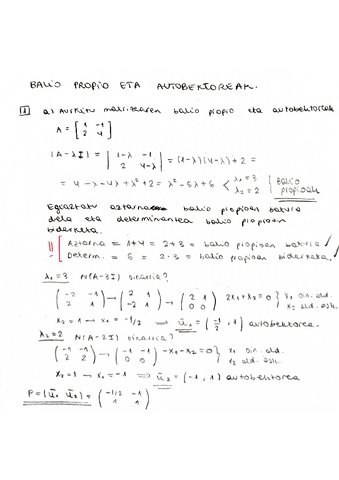 BALIO PROPIO ETA AUTOBEKTOREAK.
1 a) Aurkitu matrizearen balio propio eta autobektoreak
A = [1 -1; 2 4]
|A-λI| = |1-λ -1; 2 4-λ| = (1-λ)(4-λ)+2 =
= 4-λ-4λ+λ²+2 = λ²-5λ+6 < λ₁=3 λ₂=2 } balio propioak
Egiaztatu aztarna balio propioen batura
dela eta determinantea balio propioen
biderketa.
!! [ Aztarna = 1+4 = 2+3 = balio propioen batura ✓
Determ. = 6 = 2·3 = balio propioen biderketa. ✓
λ₁=3 N(A-3I) oinarria?
(-2 -1; 2 1) → (2 1; -2 -1) → (2 1; 0 0) 2x₁+x₂=0 }
x₂=1 → x₁=-1/2 ⇒ ū₁=(-1/2, 1) autobektorea.
λ₂=2 N(A-2I) oinarria?
(-1 -1; 2 2) → (-1 -1; 0 0) -x₁-x₂=0 }
x₂=1 → x₁=-1 ⇒ ū₂=(-1, 1) autobektorea
P=(ū₁ ū₂) = (-1/2 -1; 1 1)